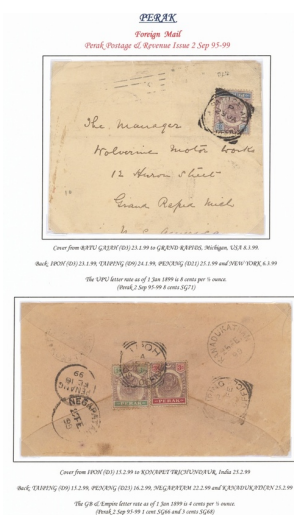 PERAK
Foreign Mail
Perak Postage & Revenue Issue 2 Sep 95-99
The Manager
Wolverine Motor Works
12 Huron Street
Grand Rapid Mich
U.S. America
Cover from BATU GAJAH (D3) 23.1.99 to GRAND RAPIDS, Michigan, USA 8.3.99.
Back: IPOH (D3) 23.1.99, TAIPING (D9) 24.1.99, PENANG (D21) 25.1.99 and NEW YORK 6.3.99
The UPU letter rate as of 1 Jan 1899 is 8 cents per ½ ounce.
(Perak 2 Sep 95-99 8 cents SG71)
IPOH
PENANG
99
NEGAPATAM
PERAK
PERAK
Cover from IPOH (D3) 15.2.99 to KONAPET TRICHUNDAUR, India 25.2.99
Back: TAIPING (D9) 15.2.99, PENANG (D23) 16.2.99, NEGAPATAM 22.2.99 and KANADUKATHAN 25.2.99
The GB & Empire letter rate as of 1 Jan 1899 is 4 cents per ½ ounce.
(Perak 2 Sep 95-99 1 cent SG66 and 3 cents SG68)